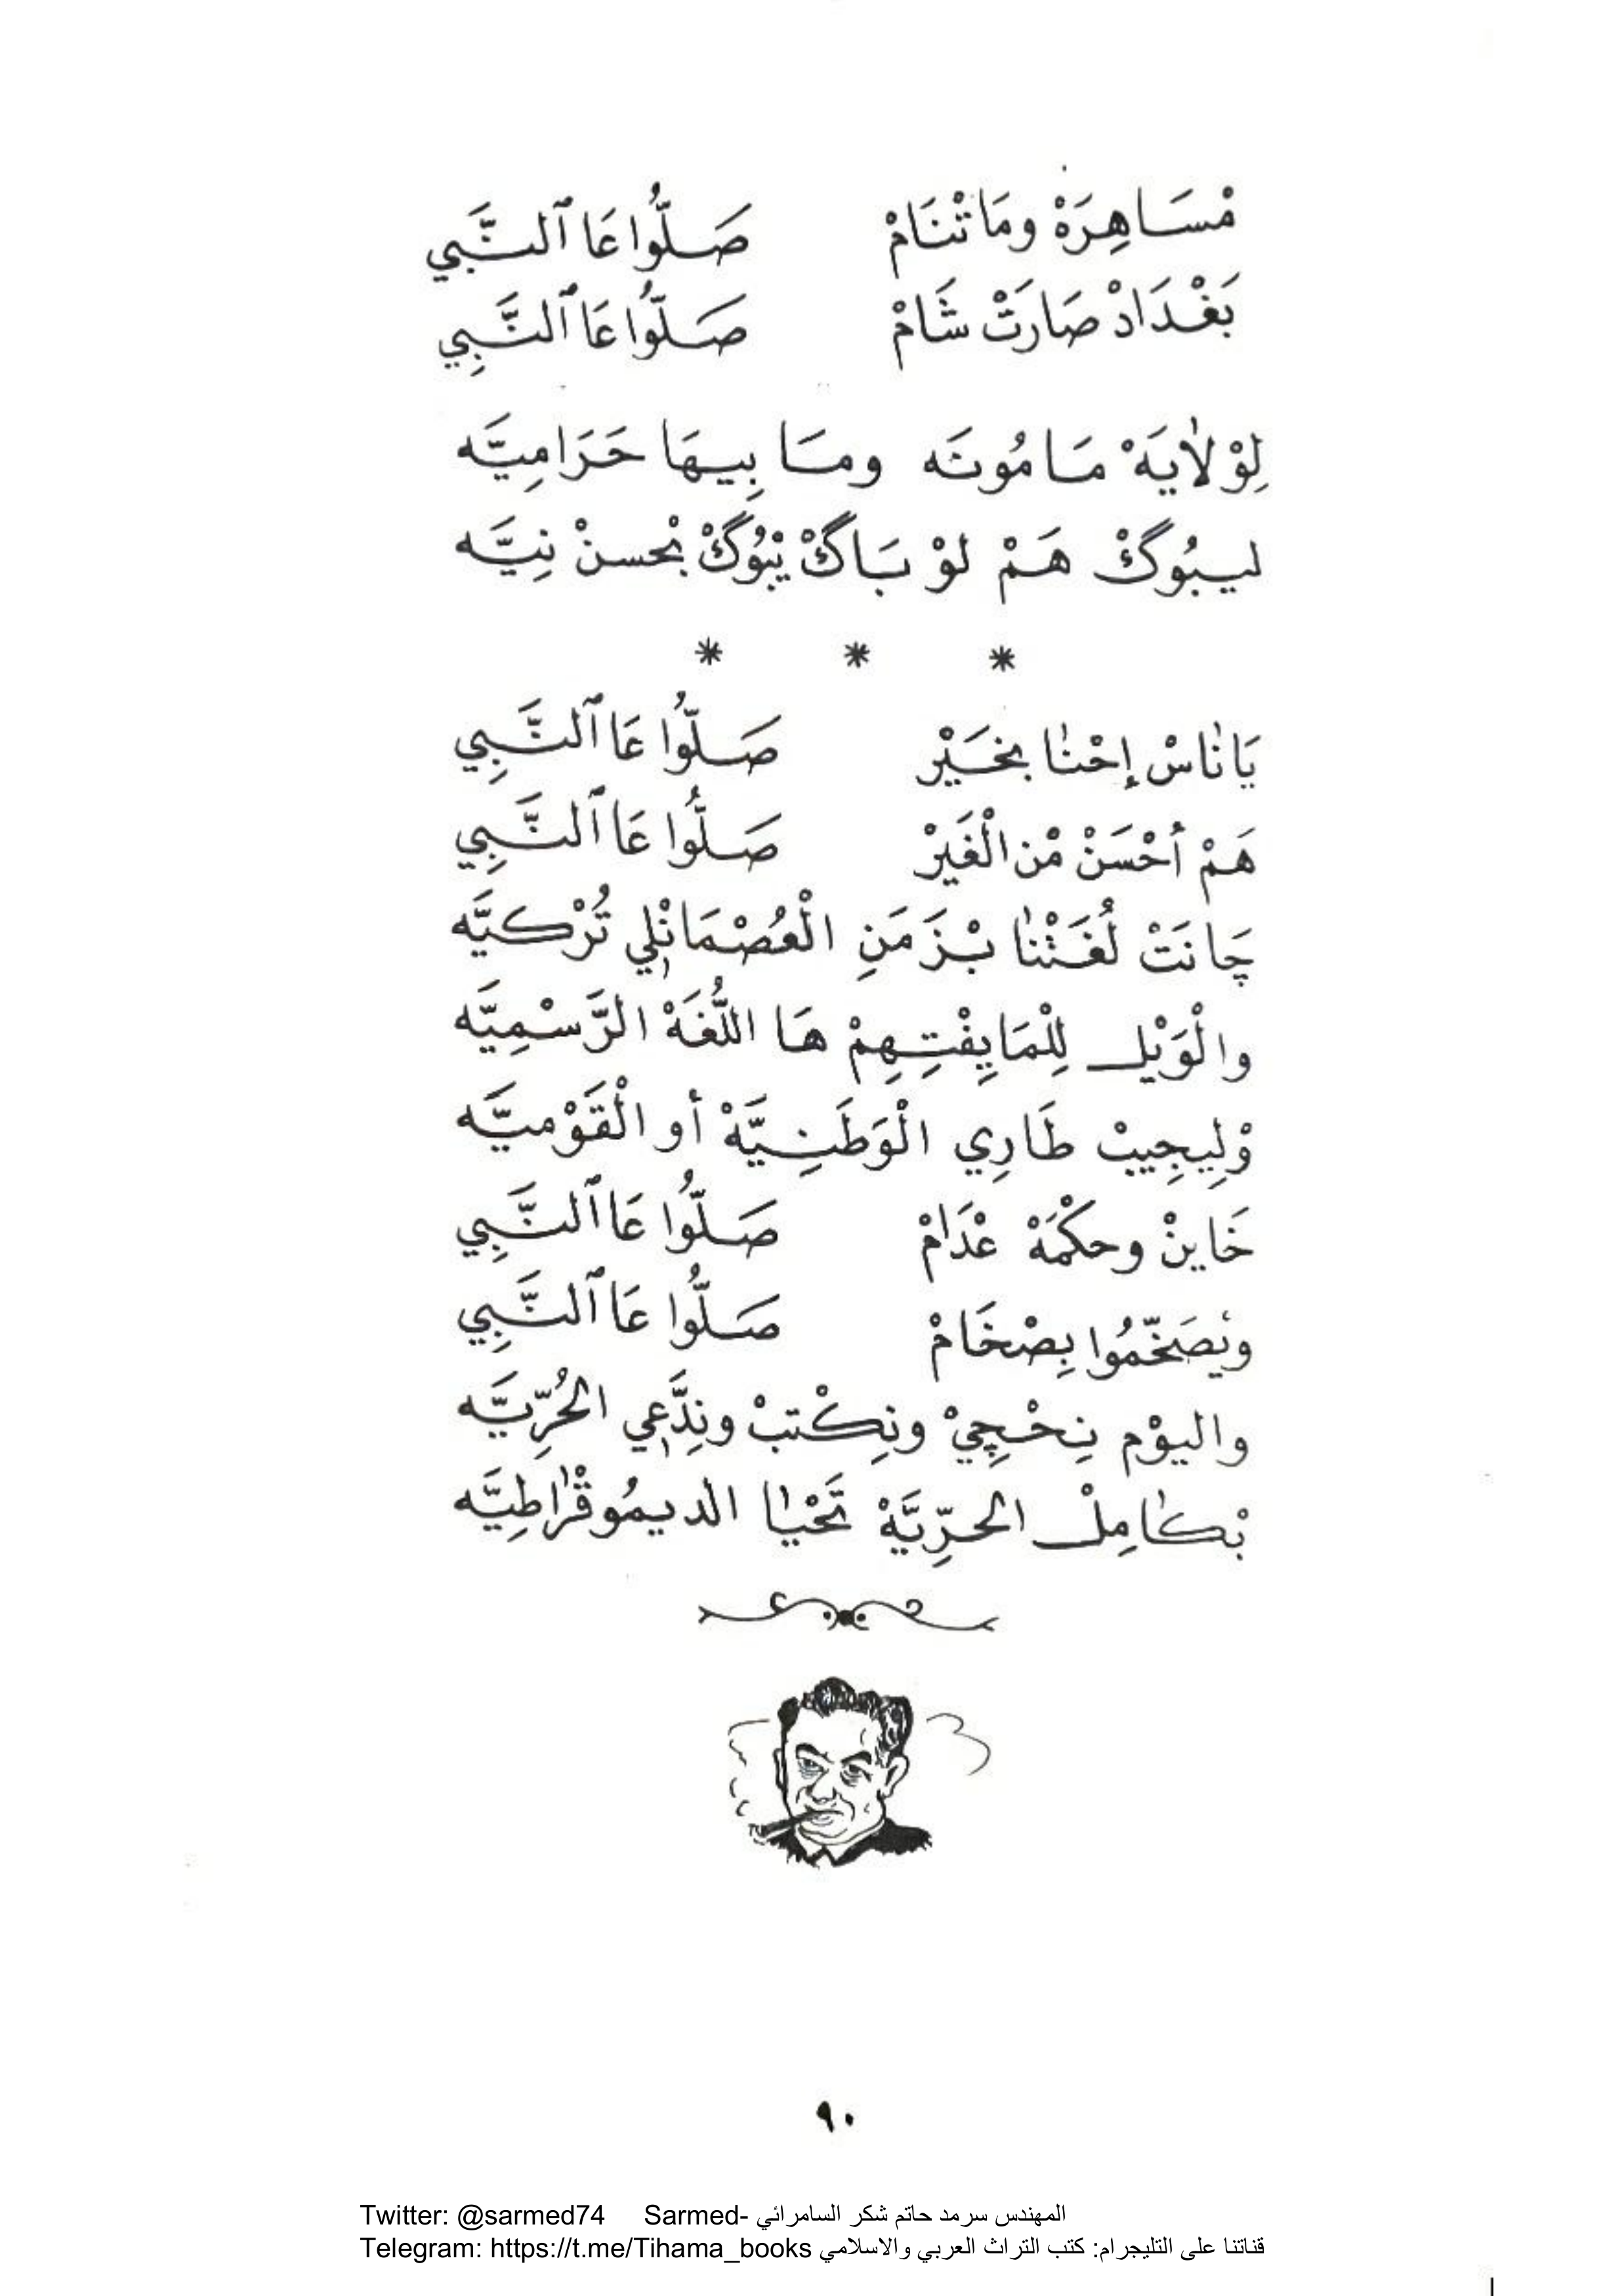 مْسَاهِرَهْ ومَاتْنَامْ صَلُّوا عَا ٱلنَّبي
بَغْدَادْ صَارَتْ شَامْ صَلُّوا عَا ٱلنَّبِي
لِوْلَايَهْ مَامُونَه ومَا بِيهَا حَرَامِيَّه
ليبُوگْ هَمْ لوْ بَاگْ يْبُوگْ بْحسنْ نِيَّه
* * *
يَانَاسْ إحْنَا بخَيْر صَلُّوا عَا ٱلنَّبِي
هَمْ أحْسَنْ مْن الْغَيْر صَلُّوا عَا ٱلنَّبِي
چَانَتْ لُغَتْنَا بْزَمَنِ الْعُصْمَانْلِي تُرْكيَّه
والْوَيْل لِلْمَايِفْتِهِمْ هَا اللُّغَهْ الرَّسْمِيَّه
وْلِيجِيبْ طَارِي الْوَطَنِيَّهْ أو الْقَوْميَّه
خَاينْ وحكْمَهْ عْدَامْ صَلُّوا عَا ٱلنَّبِي
ويْصَخّمُوا بِصْخَامْ صَلُّوا عَا ٱلنَّبِي
واليوْم نِحْچِيْ ونِكْتبْ ونِدَّعِي الحُرِّيَّه
بْكَامِلْ الحرِّيَّهْ تَحْيَا الديمُوقْرَاطِيَّه
٩٠
Twitter: @sarmed74 Sarmed- المهندس سرمد حاتم شكر السامرائي
Telegram: https://t.me/Tihama_books قناتنا على التليجرام: كتب التراث العربي والاسلامي